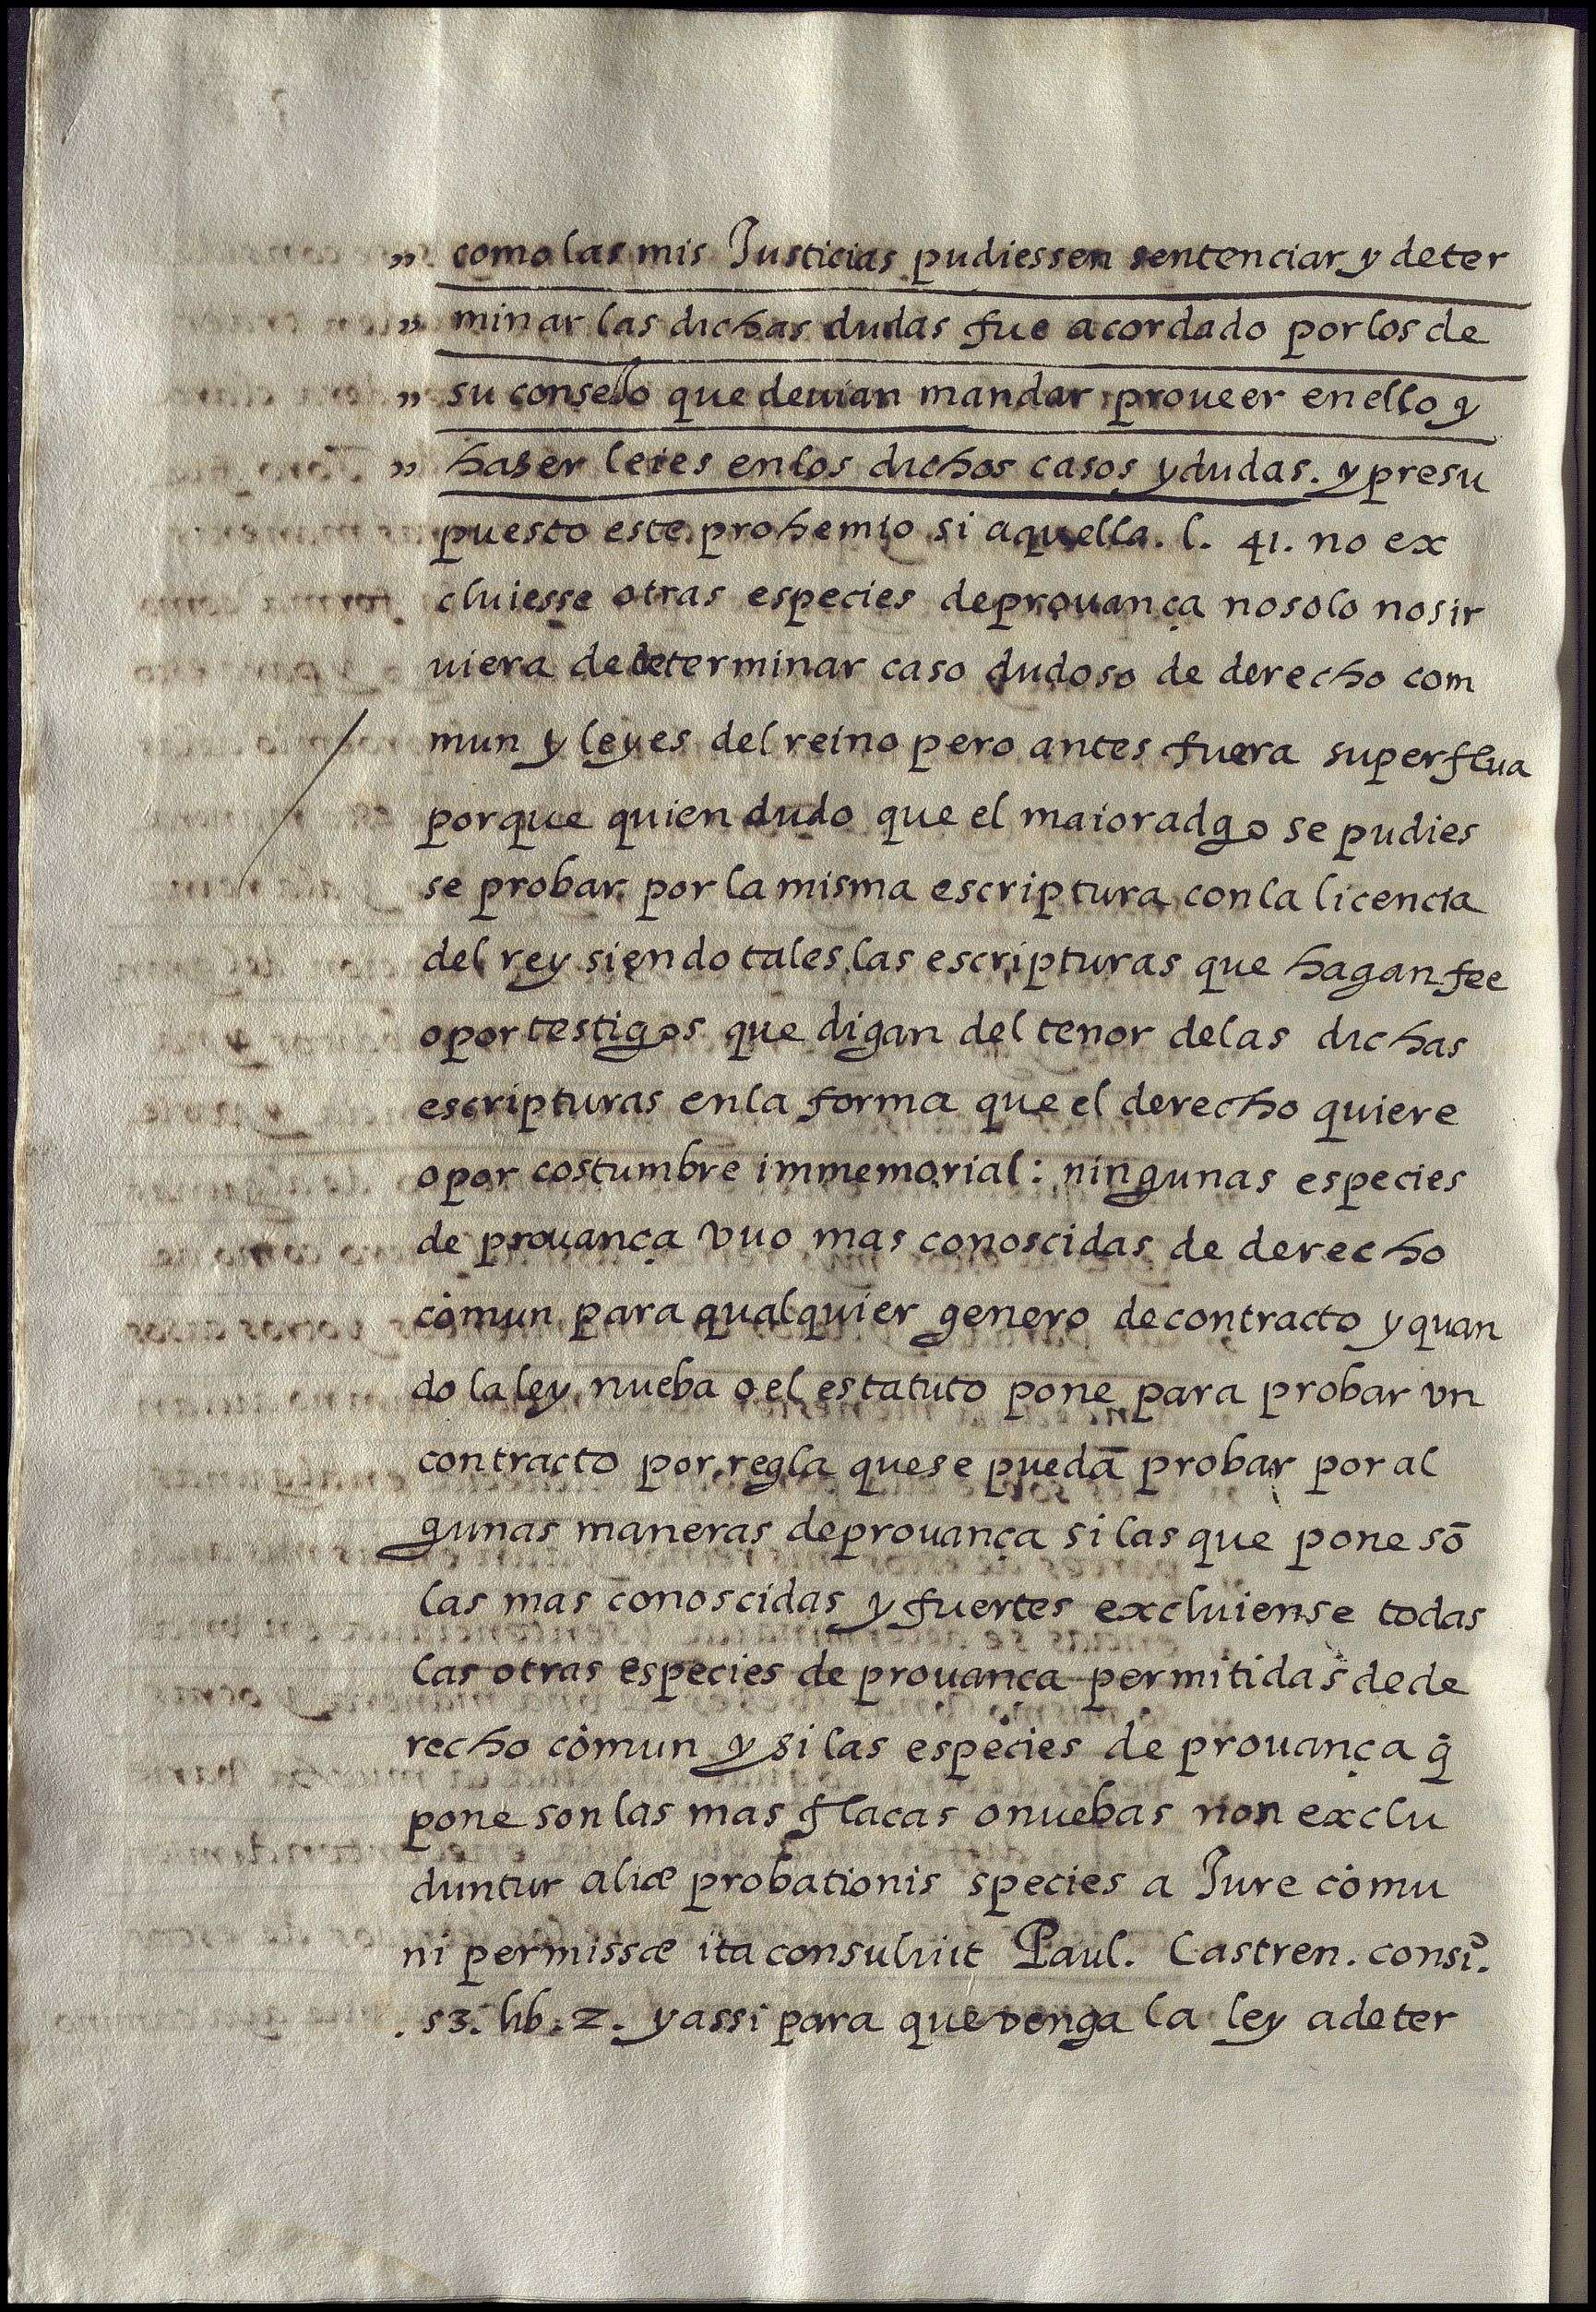 ” como las mis Justicias pudiessen sentenciar y deter
” minar las dichas dudas fue acordado por los de
” su consello que deuian mandar proueer en ello y
” haser leies en los dichos casos y dudas. y presu
puesto este prohemio si aquella. l. 41. no ex
cluiesse otras especies de prouança no solo no sir
uiera de determinar caso dudoso de derecho com
mun y leyes del reino pero antes fuera superflua
porque quien dudo que el maioradgo se pudies
se probar por la misma escriptura con la licencia
del rey siendo tales las escripturas que hagan fee
o por testigos que digan del tenor de las dichas
escripturas en la forma que el derecho quiere
o por costumbre immemorial: ningunas especies
de prouança vuo mas conoscidas de derecho
comun para qualquier genero de contracto y quan
do la ley nueba o el estatuto pone para probar vn
contracto por regla que se puedā probar por al
gunas maneras de prouança si las que pone sō
las mas conoscidas y fuertes excluiense todas
las otras especies de prouança permitidas de de
recho comun y si las especies de prouança q̃
pone son las mas flacas o nuebas non exclu
duntur aliæ probationis species a Jure comu
ni permissæ ita consuluit Paul. Castren. consiº.
. 53. lib. 2. y assi para que venga la ley a deter